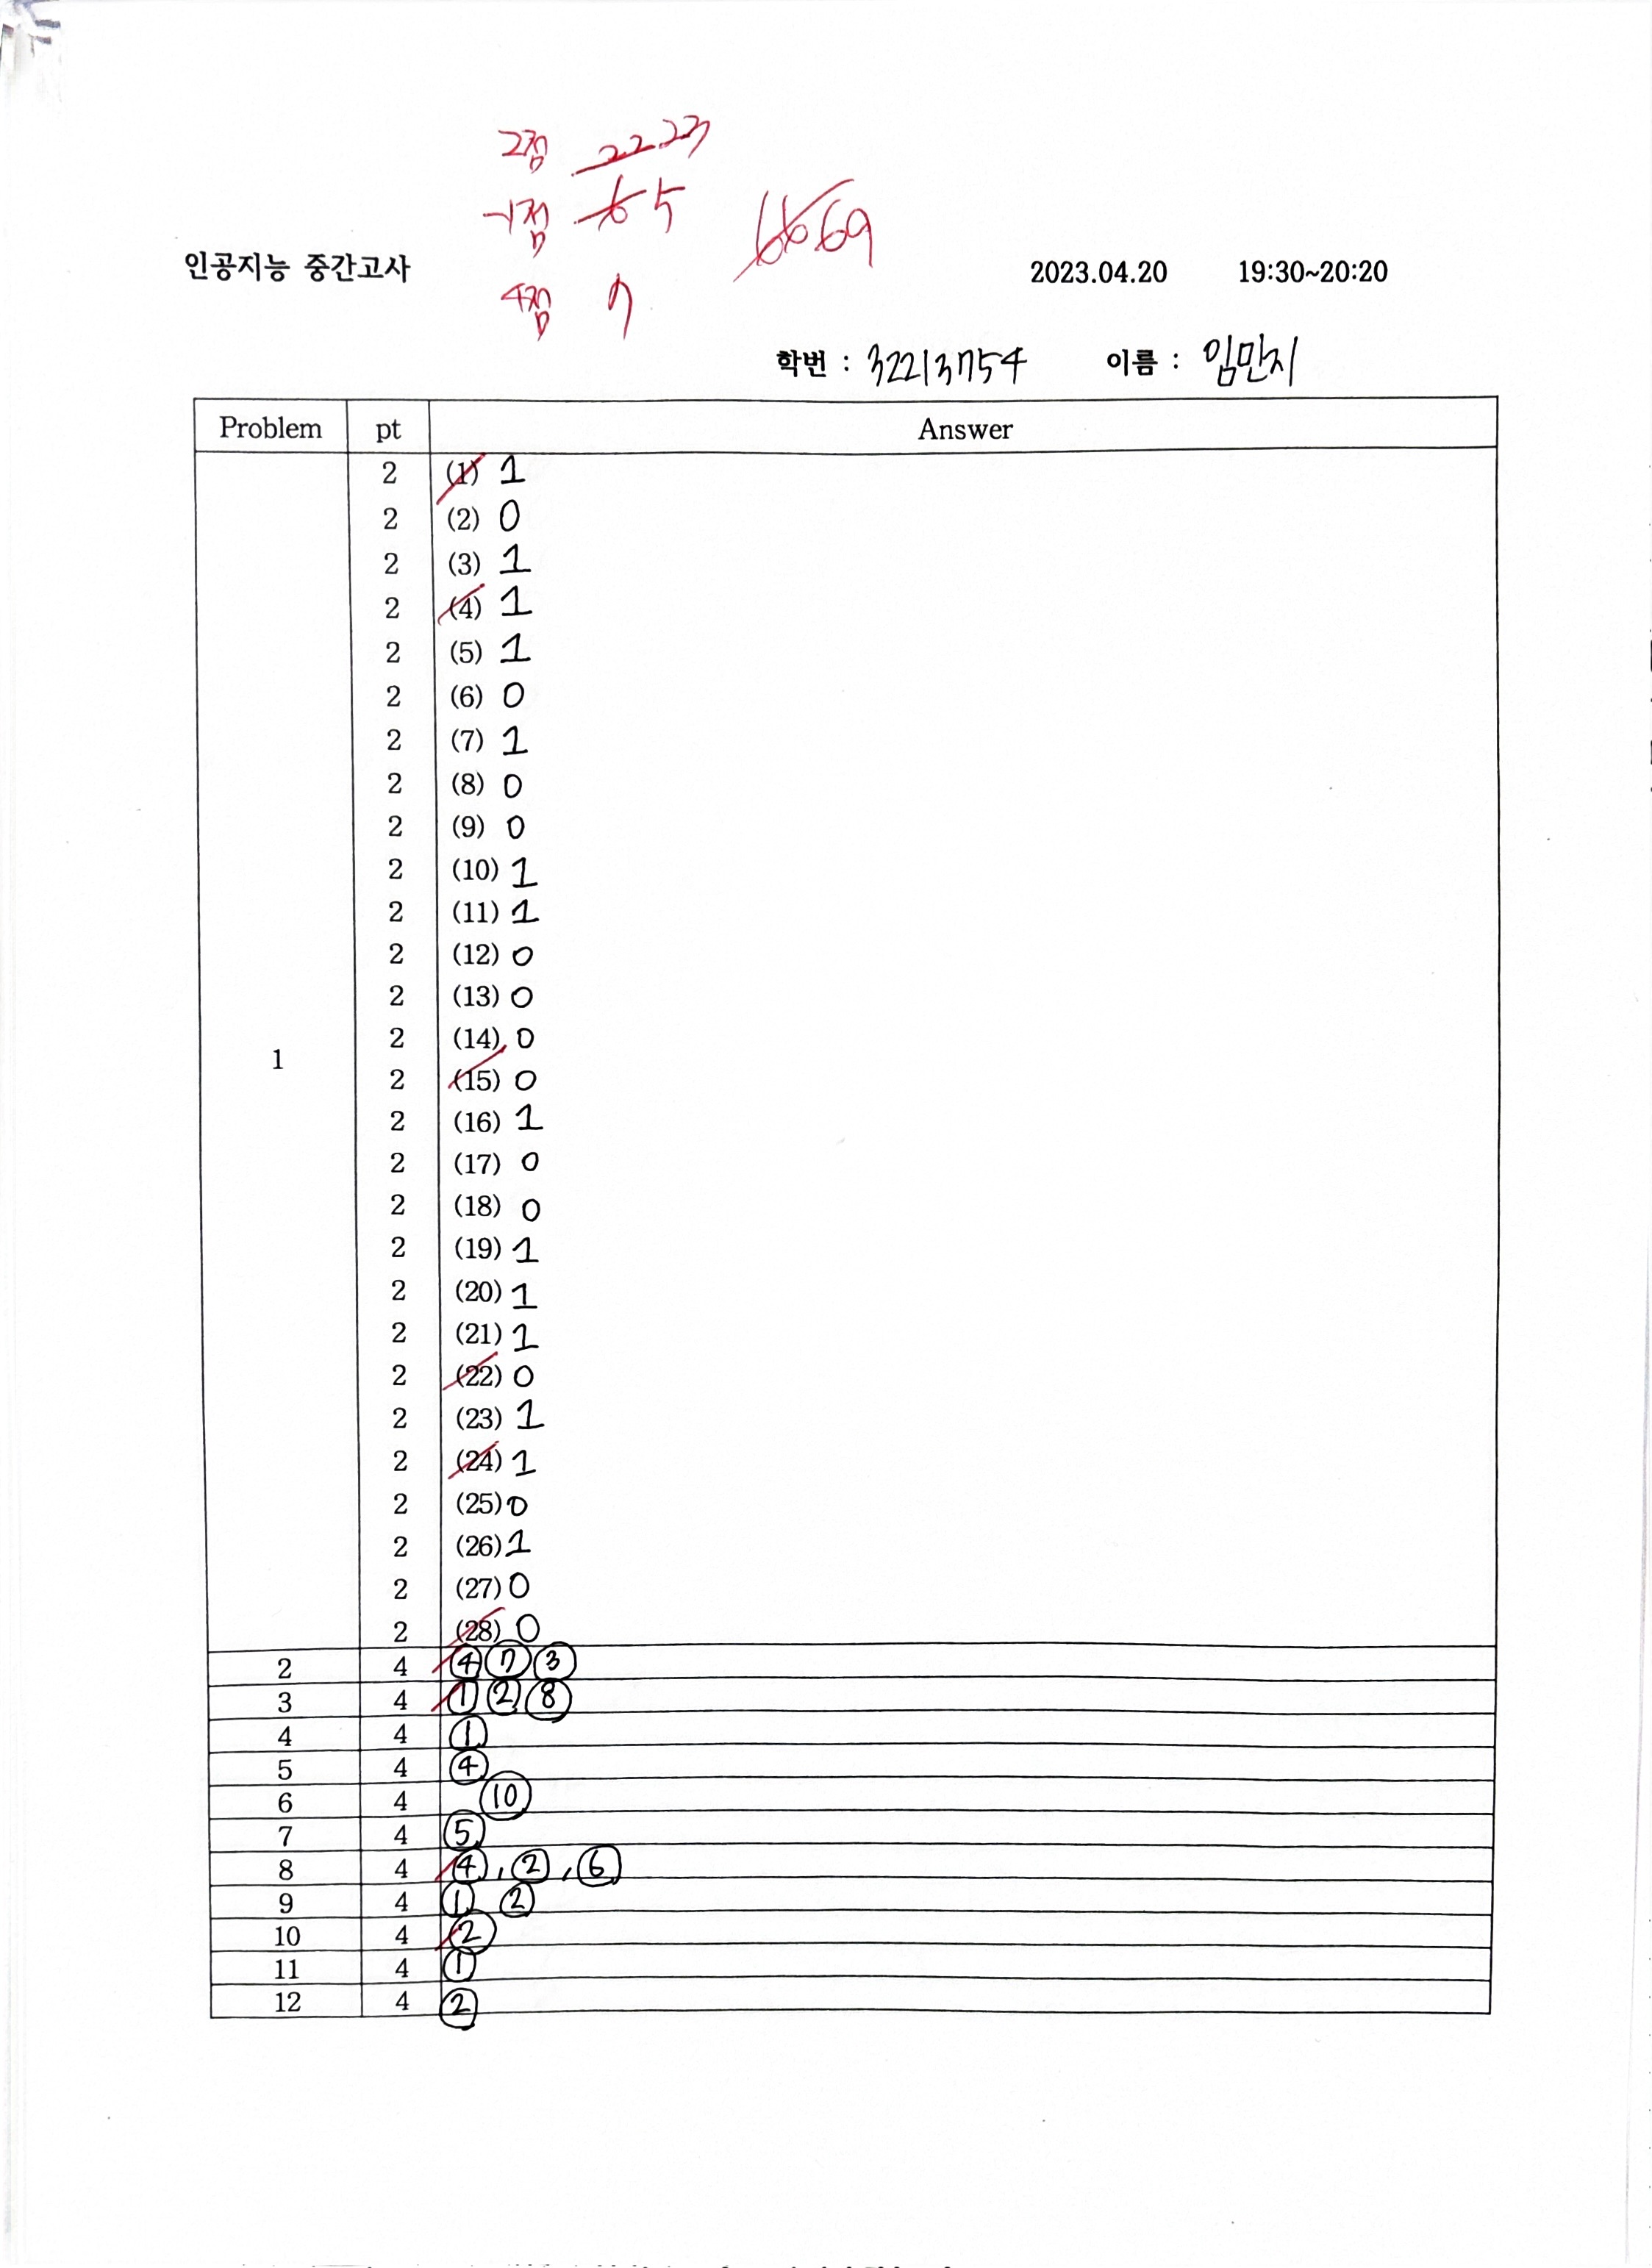 2점 22 23
-1점 6 5
66 69
인공지능 중간고사 2023.04.20 19:30~20:20
4점 7
학번 : 32213754 이름 : 임만지
Problem pt Answer
2 (1) 1
2 (2) 0
2 (3) 1
2 (4) 1
2 (5) 1
2 (6) 0
2 (7) 1
2 (8) 0
2 (9) 0
2 (10) 1
2 (11) 1
2 (12) 0
2 (13) 0
2 (14) 0
1
2 (15) 0
2 (16) 1
2 (17) 0
2 (18) 0
2 (19) 1
2 (20) 1
2 (21) 1
2 (22) 0
2 (23) 1
2 (24) 1
2 (25) 0
2 (26) 1
2 (27) 0
2 (28) 0
2 4 ④ ⑦ ③
3 4 ① ② ⑧
4 4 ①
5 4 ④
6 4 ⑩
7 4 ⑤
8 4 ④ , ② , ⑥
9 4 ① ②
10 4 ②
11 4 ①
12 4 ②